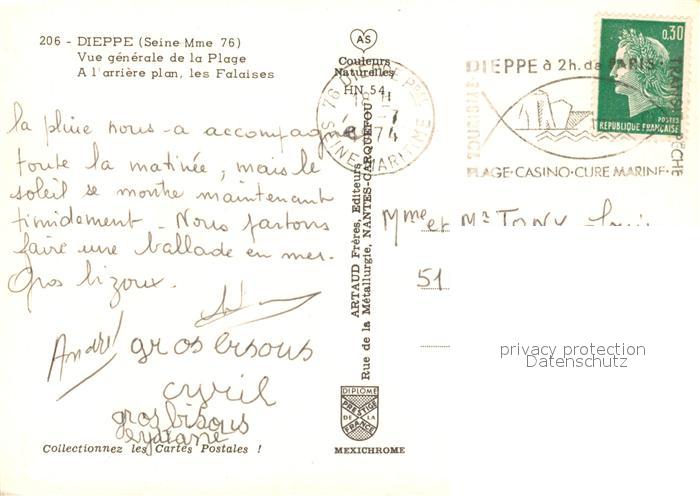 206 - DIEPPE (Seine Mme 76)
Vue générale de la Plage
A l'arrière plan, les Falaises
la pluie nous a accompagné
toute la matinée, mais le
soleil se montre maintenant
timidement - Nous partons
faire une ballade en mer.
Gros bizoux.
André
gros bisous
cyril
gros bisous
Collectionnez les Cartes Postales !
AS
Couleurs
Naturelles
HN 54
ARTAUD Frères, Editeurs
Rue de la Métallurgie, NANTES-CARQUEFOU
DIPLOME
PRESTIGE
DE LA
FRANCE
MEXICHROME
76 DIEPPE Pal
SEINE-MARITIME
DIEPPE à 2h. de PARIS
TOURISME
PLAGE-CASINO-CURE MARINE
0,30
POSTES
REPUBLIQUE FRANÇAISE
Mme et Mr TONY
51
privacy protection
Datenschutz